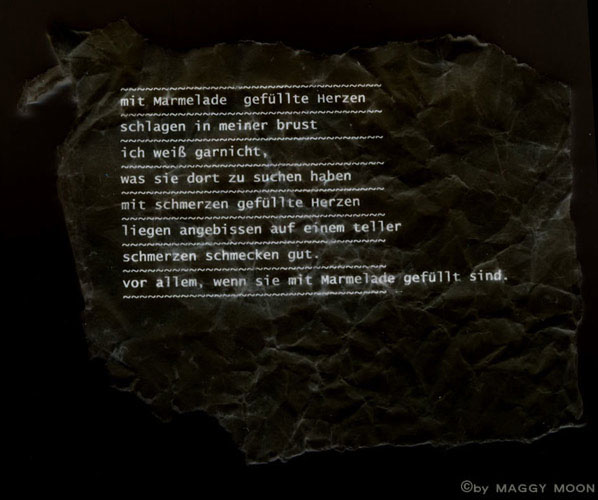 ~~~~~~~~~~~~~~~~~~~~~~~~~~~~~~~~~
mit Marmelade  gefüllte Herzen
~~~~~~~~~~~~~~~~~~~~~~~~~~~~~~~~~
schlagen in meiner brust
~~~~~~~~~~~~~~~~~~~~~~~~~~~~~~~~~
ich weiß garnicht,
~~~~~~~~~~~~~~~~~~~~~~~~~~~~~~~~~
was sie dort zu suchen haben
~~~~~~~~~~~~~~~~~~~~~~~~~~~~~~~~~
mit schmerzen gefüllte Herzen
~~~~~~~~~~~~~~~~~~~~~~~~~~~~~~~~~
liegen angebissen auf einem teller
~~~~~~~~~~~~~~~~~~~~~~~~~~~~~~~~~
schmerzen schmecken gut.
~~~~~~~~~~~~~~~~~~~~~~~~~~~~~~~~~
vor allem, wenn sie mit Marmelade gefüllt sind.
~~~~~~~~~~~~~~~~~~~~~~~~~~~~~~~~~
©by MAGGY MOON